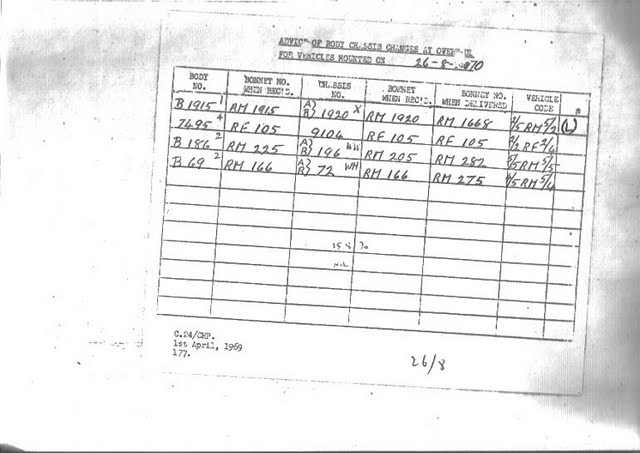 ADVICE OF BODY CHASSIS CHANGES AT OVERHAUL
FOR VEHICLES MOUNTED ON 26-8-1970
BODY NO. BONNET NO. WHEN REC'D. CHASSIS NO. BONNET WHEN REC'D. BONNET NO. WHEN DELIVERED VEHICLE CODE *
B1915 1 RM 1915 A) B) 1920 X RM 1920 RM 1668 2/5 RM 5/2 (L)
7495 4 RF 105 9104 RF 105 RF 105 2/2 RF 2/6
B186 2 RM 225 A) B) 196 WW RM 205 RM 282 5/5 RM 5/5
B 69 2 RM 166 A) B) 72 WH RM 166 RM 275 4/5 RM 5/6
NIL
C.24/CHP.
1st April, 1969
177.
26/8